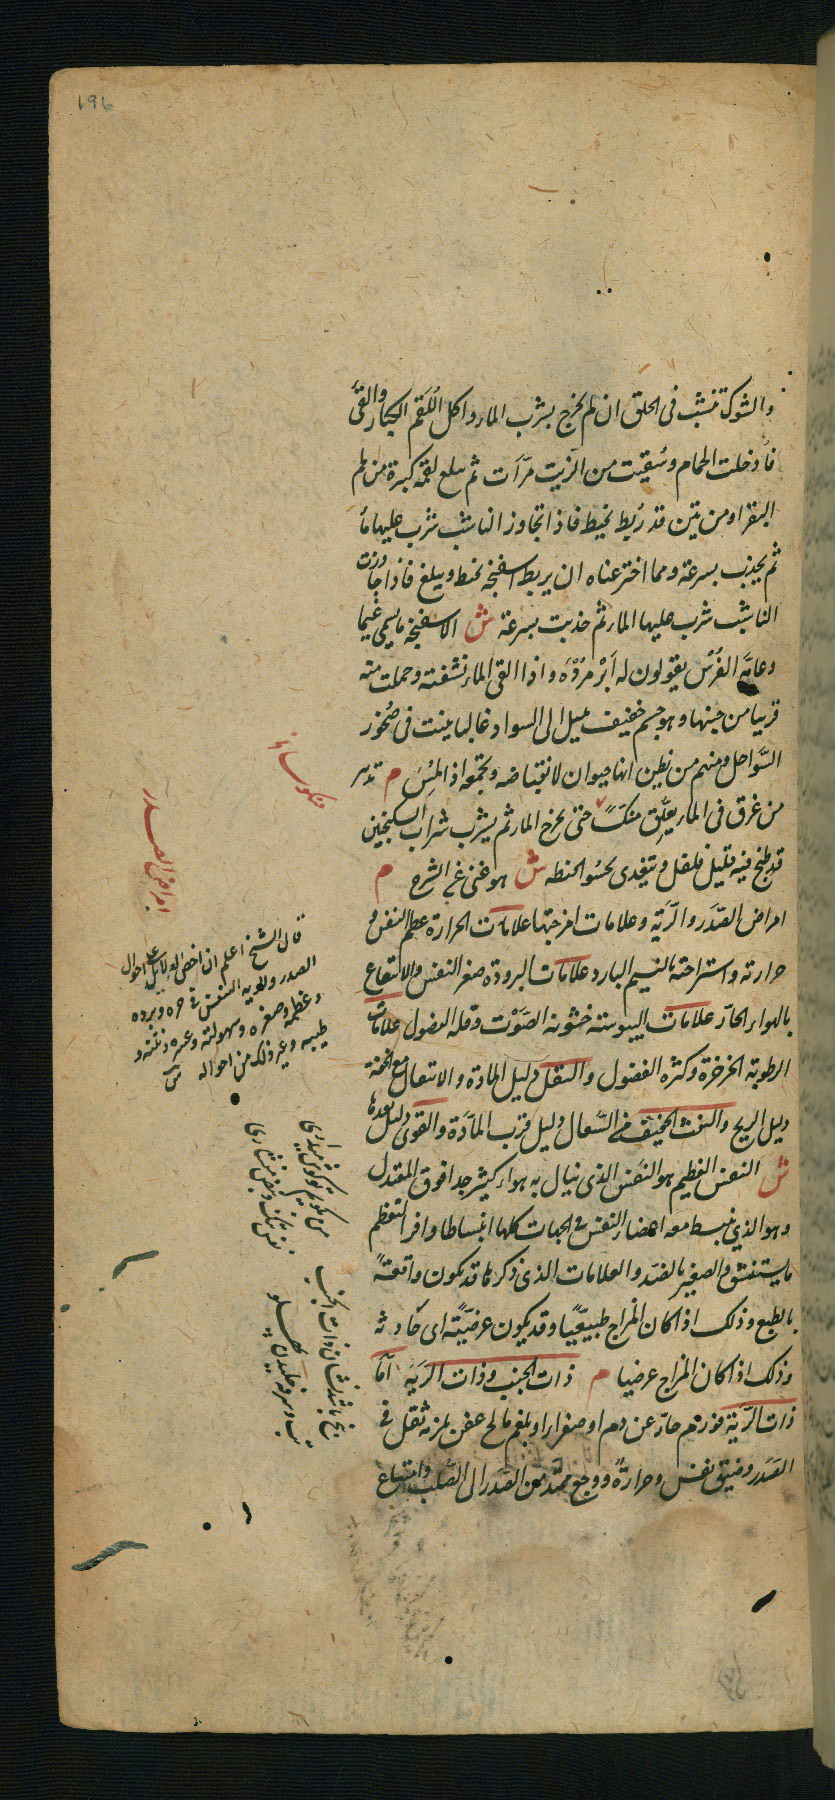 ١٩٤
والشوكة تنشب فى الحلق ان لم تخرج بشرب الماء واكل اللقم الكبار والقئ
فأدخلت الحمام وسُقيت من الزيت مرّات ثم يبلع لقمة كبيرة من لحم
البقر او من تين قد رُبط بخيط فاذا تجاوز الناشب شرب عليها ماء
ثم يجذب بسرعة ومما اخترعناه ان يربط اسفنجة بخيط ويبلع فاذا جاوزت
الناشب شرب عليها الماء ثم جذبت بسرعة ش الاسفنجة ما يسمى غيما
وعامّة الفُرس يقولون له اَبْر مُرْدَه واذا القى الماء نشفته وحملت منه
قريبا من جنبها وهو جسم خفيف يميل الى السواد غالبا ينبت فى صُخور
السَّواحل ومنهم من يظن انها حيوان لانقباضه وتجمّعه اذا لُمِسَ م تدبير
من غرق فى الماء يعلّق منكسًا حتى يخرج الماء ثم يشرب شراب السكنجبين
قد طبخ فيه قليل فلفل ويتغدى بحسُو الحنطه ش هو غنى عن الشرح م
امراض الصَّدر والرَّية وعلامات امزجتها علامات الحرارة عظم النفس و
حرارته واستراحته بالنسيم البارد علامات البرودة صغر النفس والانتفاع
بالهواء الحارّ علامات اليبوسة خشونة الصَّوْت وقلة الفضول علامات
الرطوبة الخرخرة وكثرة الفضول والثقل دليل المادة والاشتعال مع الخفة
دليل الريح والنفث الخفيف فى السّعال دليل قرب المادّة والقوى دليل بعدها
ش النفس العظيم هو النفَس الذى ينال به هواء كثير جدا فوق المعتدل
وهو الذى ينبسط معه اعضاء النفس فى الجهات كلها انبساطا وافرا لتعظم
ما يستنشق والصغير بالضد والعلامات الذى ذكر ما قد يكون واقعةً
بالطبع وذلك اذا كان المزاج طبيعيًّا وقد يكون عرضيّة اى حادثة
وذلك اذا كان المزاج عرضيا م ذات الجنب وذات الرّية امّا
ذات الرّية فورم حارّ عن دم او صفراء او بلغم مالح عفن يلزمه ثقل فى
الصَّدر وضيق نفس وحرارةٌ ووجع ممتد من الصَّدر الى الصُّلب وامتناع
امراض الصدر
قال الشيخ اعلم ان اخص الدلائل على احوال
الصدر والرية النفس فى حره وبرده
وعظمه وصغره وسهولته وعسره ونتنه و
طيبه وغير ذلك من احواله ش